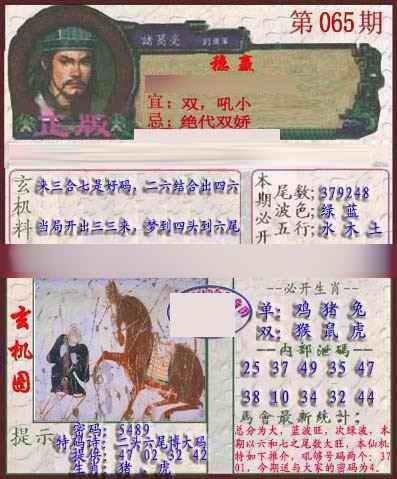 第065期
諸葛亮
稳赢
宜：双，吼小
忌：绝代双娇
正版
玄机料
来三合七是好码，二六结合出四六
当局开出三三来，梦到四头到六尾
本期必开
尾数;379248
波色;绿 蓝
五行;水 木 土
玄机图
--必开生肖--
单：鸡 猪 兔
双：猴 鼠 虎
--内部泄码--
25 37 49 35 47
38 10 34 32 44
馬會最新統計：
总分为大，蓝波旺，次绿波，本
期以六和七之尾数大旺，本仙机
特如下推介，吼够号码两个：37
01，今期送与大家的密码为4．
提示
密码：5489
特码诗：二头六尾博大码
提倍：47 02 32 42
生肖：猪．虎